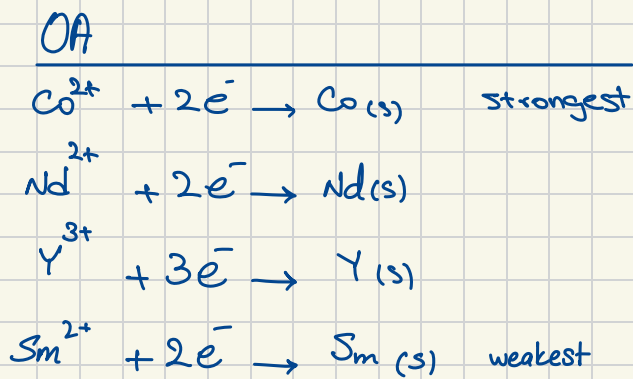 OA
Co²⁺ + 2e⁻ → Co(s) strongest
Nd²⁺ + 2e⁻ → Nd(s)
Y³⁺ + 3e⁻ → Y(s)
Sm²⁺ + 2e⁻ → Sm(s) weakest